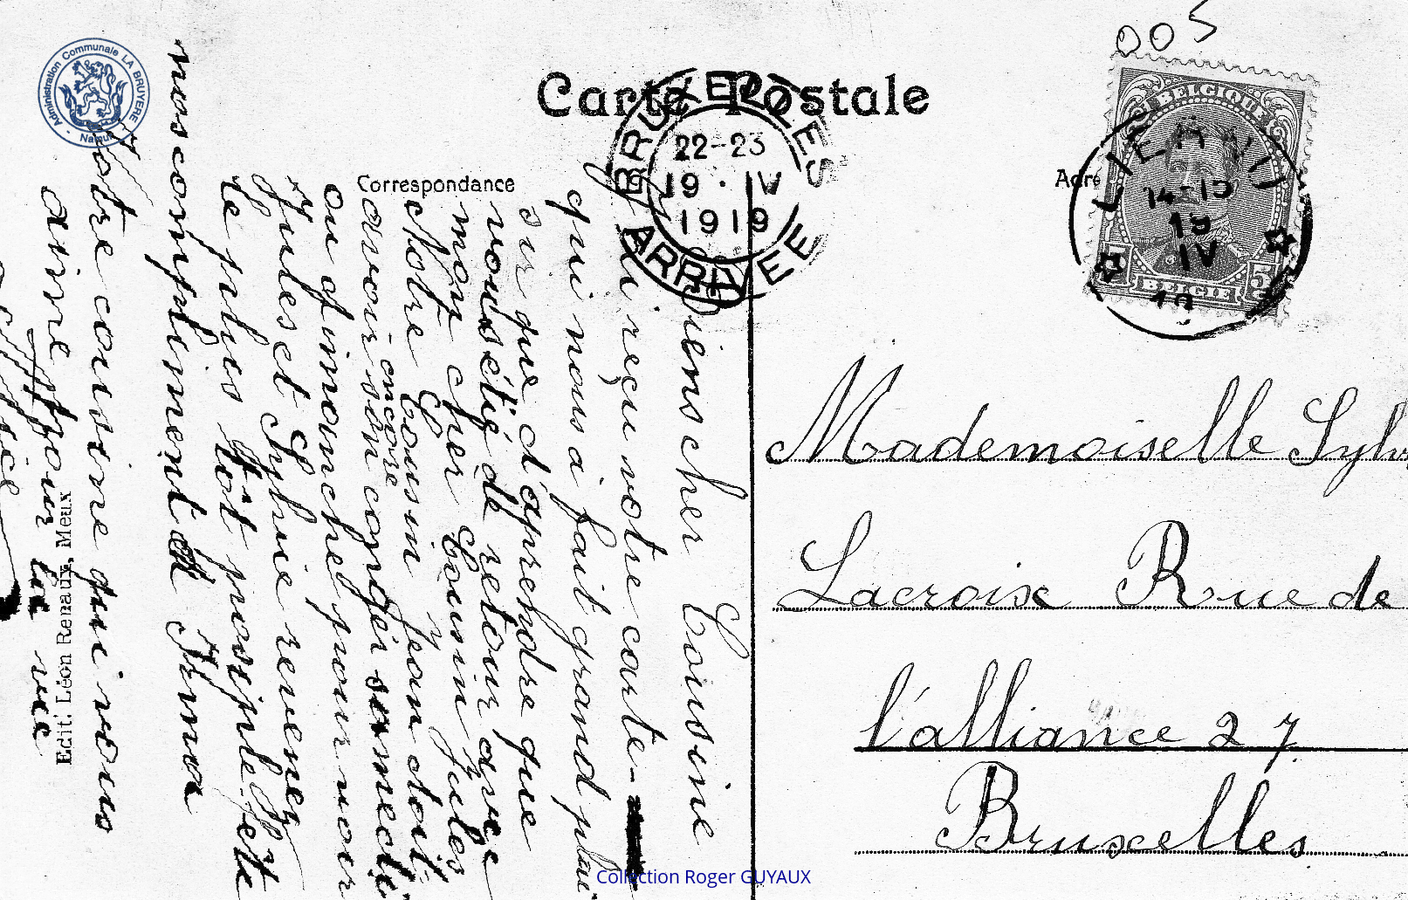 005
Carte Postale
Administration Communale LA BRUYERE
- Namur -
BRUXELLES
22-23
19 · IV
1919
ARRIVÉE
BELGIQUE
14-15
19
IV
19
5
BELGIE
Correspondance
Adre
Mademoiselle Sylv
Lacroix Rue de
l'alliance 27
Bruxelles
Biens cher Cousine
J'ai reçu votre carte
qui nous a fait grand plai
sir que d'aprendre que
vous étié de retour avec
mon cher Cousin Jules
Notre Cousin Jean doit
encore
avoir son conger samedi
ou dimanche pour
Jules et Sylvie revenez
le plus tôt posiple
nos compliment Irma
Votre cousine qui vous
aime pour la vie
Edit. Léon Renaux, Meux
Collection Roger GUYAUX